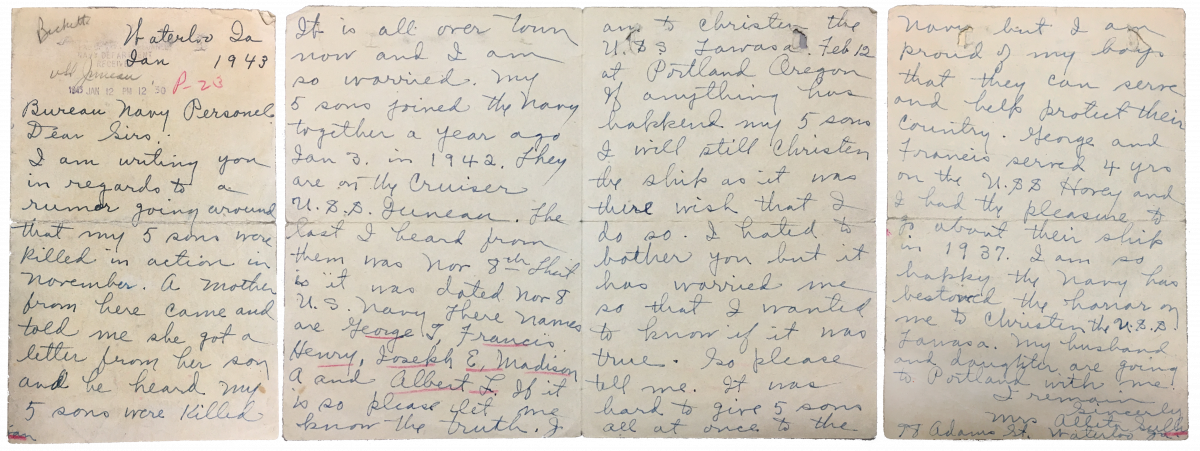 Buckette
Waterloo Ia
Jan 1943
USS Juneau
P-23
1943 JAN 12 PM 12 30
Bureau Navy Personel
Dear Sirs:
I am writing you
in regards to a
rumor going around
that my 5 sons were
killed in action in
November. A mother
from here came and
told me she got a
letter from her son
and he heard my
5 sons were killed
It is all over town
now and I am
so worried. My
5 sons joined the Navy
together a year ago
Jan 3. in 1942. They
are on the Cruiser
U.S.S. Juneau. The
last I heard from
them was Nov 8th That
is it was dated Nov 8
U.S. Navy There names
are George T, Francis
Henry, Joseph E, Madison
A and Albert L. If it
is so please let me
know the truth. I
am to christen the
U.S.S Tawasa Feb 12
at Portland Oregon
If anything has
happend my 5 sons
I will still christen
the ship as it was
there wish that I
do so. I hated to
bother you but it
has worried me
so that I wanted
to know if it was
true. So please
tell me. It was
hard to give 5 sons
all at once to the
Navy but I am
proud of my boys
that they can serve
and help protect their
country. George and
Francis served 4 yrs
on the U.S.S Hovey and
I had the pleasure to
go about their ship
in 1937. I am so
happy the Navy has
bestowed the honor on
me to Christen the U.S.S.
Tawasa. My husband
and daughter are going
to Portland with me.
I remain
Sincerely
Mrs Alleta
98 Adams St. Waterloo